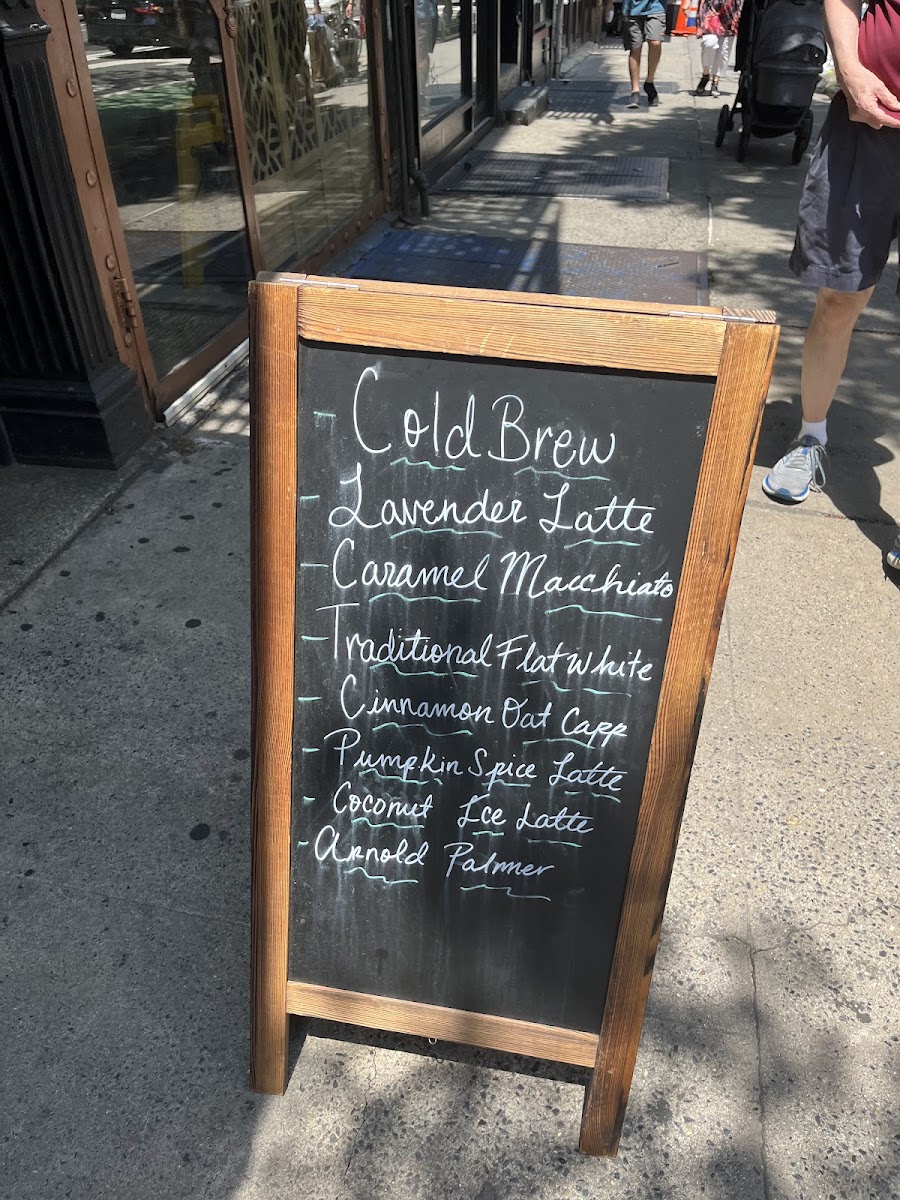 - Cold Brew
- Lavender Latte
- Caramel Macchiato
- Traditional Flat White
- Cinnamon Oat Capp
- Pumpkin Spice Latte
- Coconut Ice Latte
- Arnold Palmer